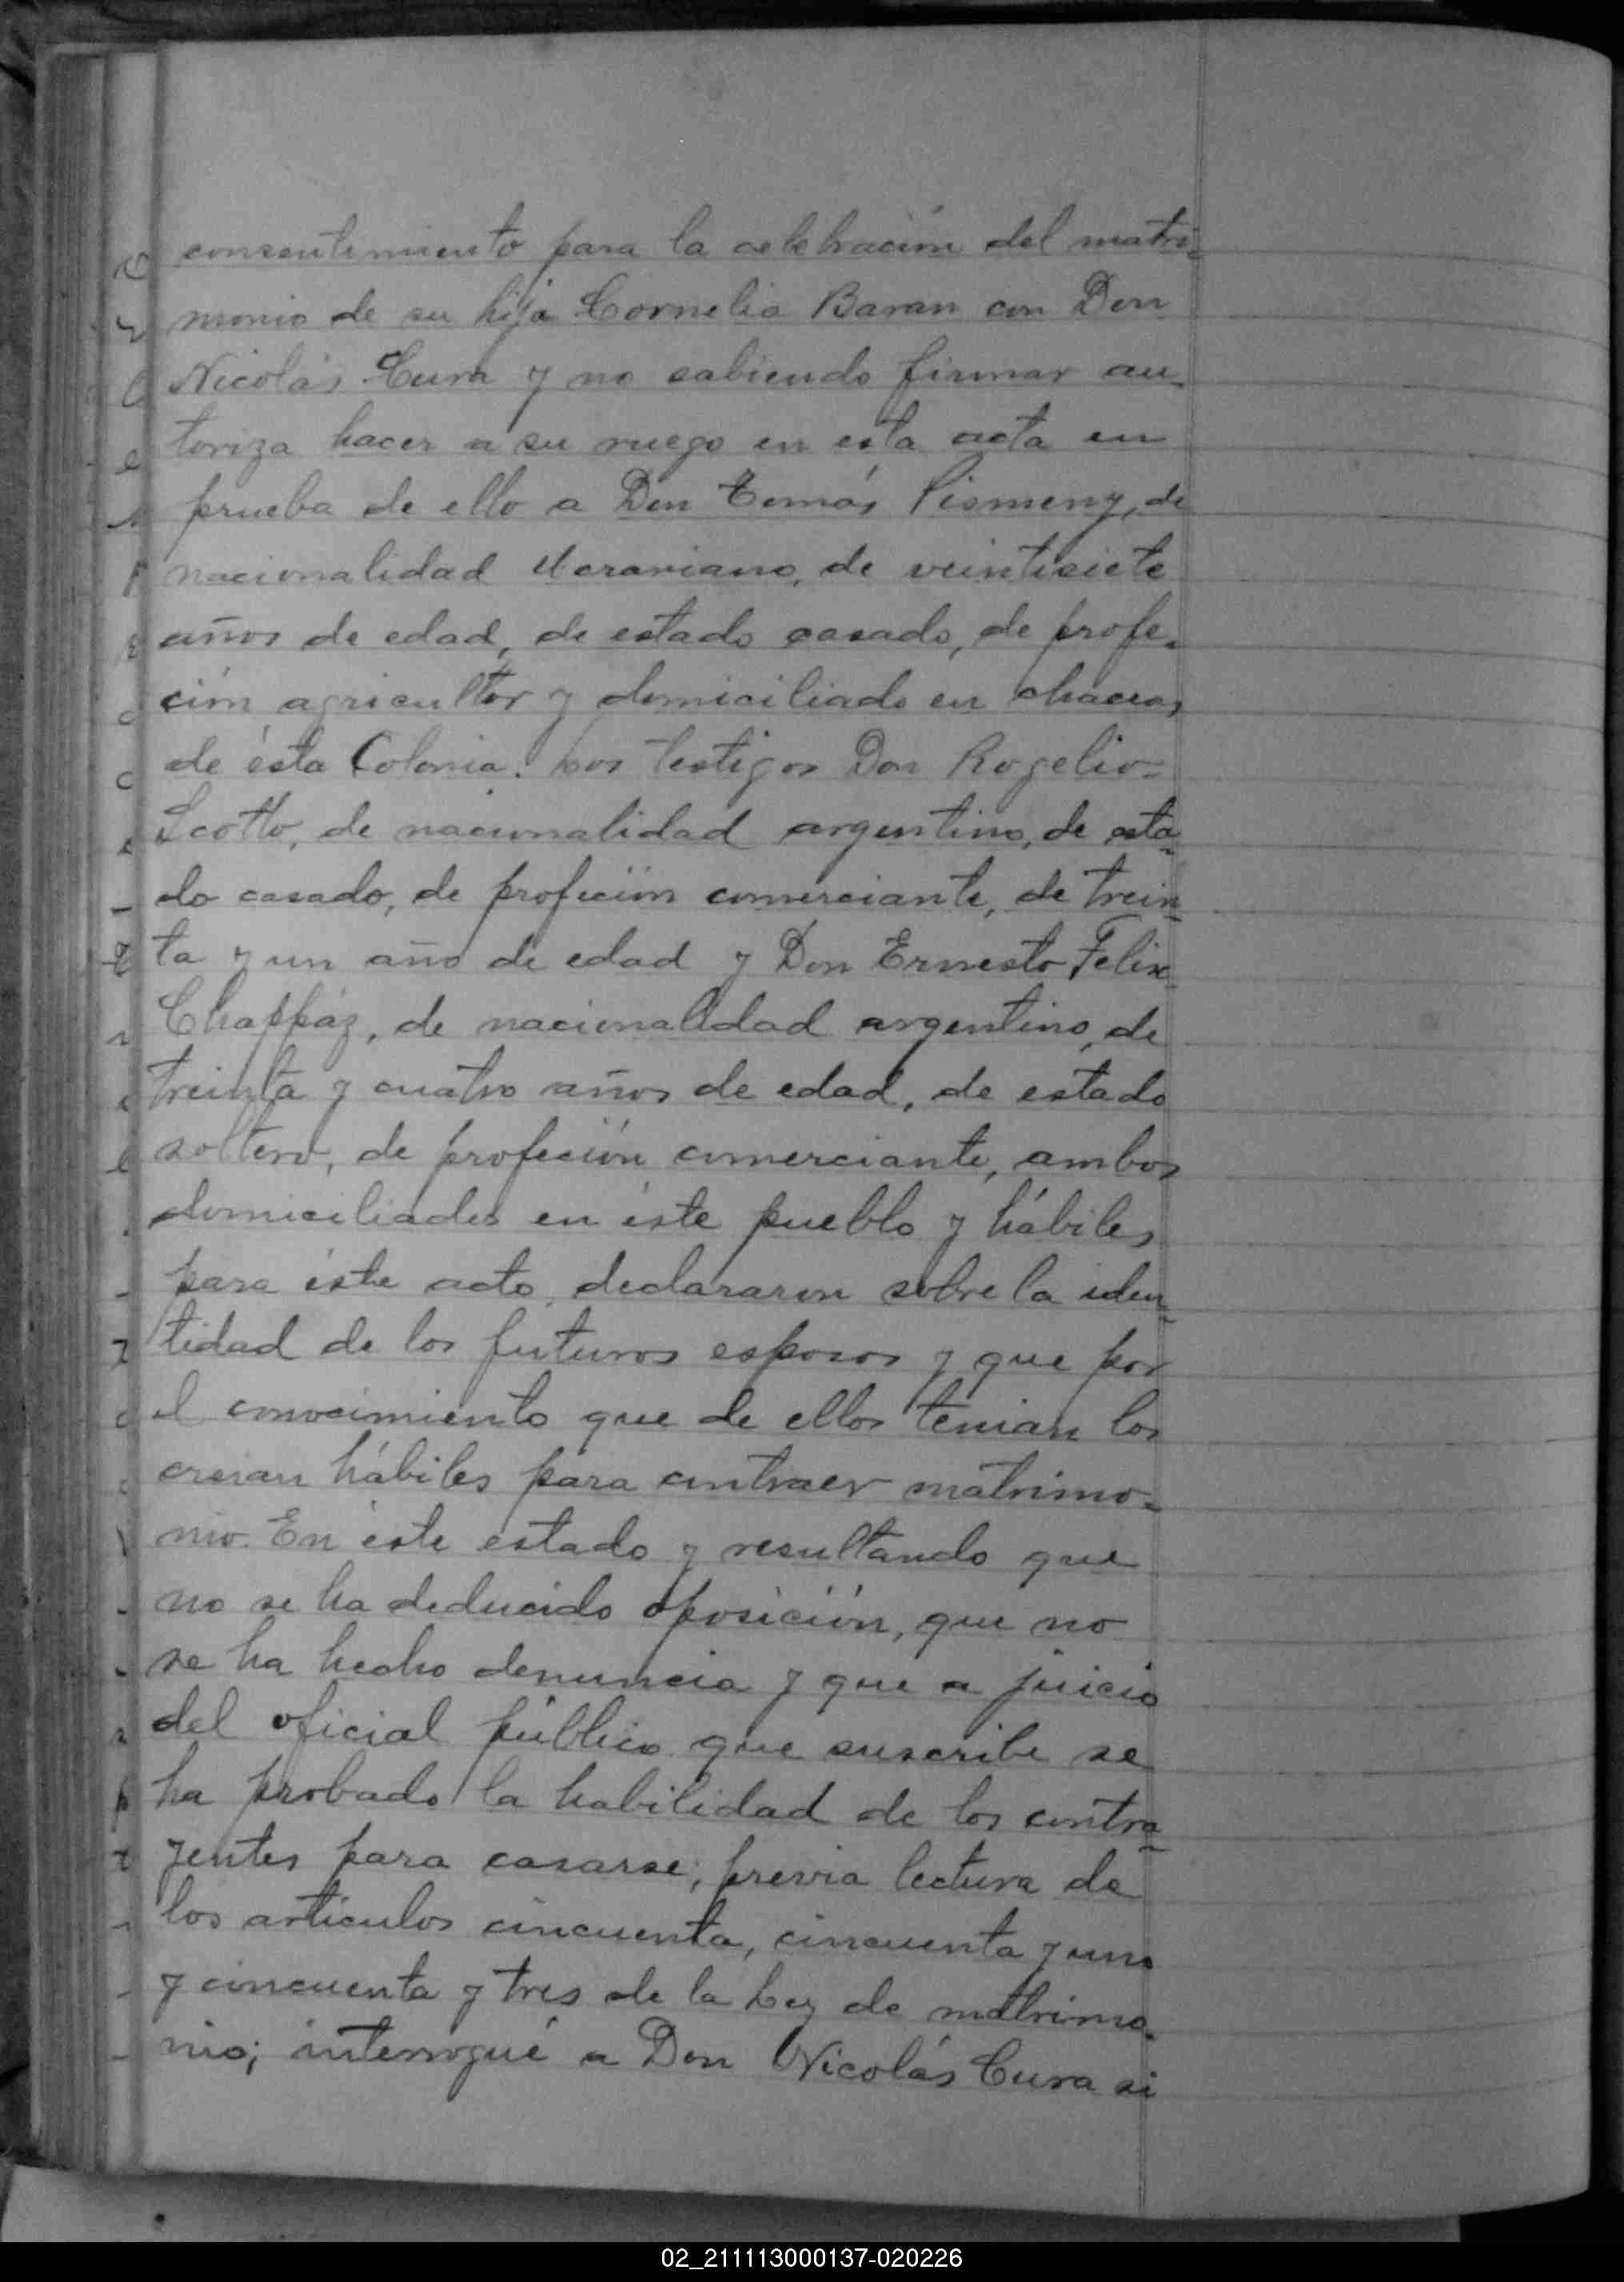 consentimiento para la celebración del matri-
monio de su hija Cornelia Baran con Don
Nicolás Cura y no sabiendo firmar au-
toriza hacer a su ruego en esta acta en
prueba de ello a Don Tomás Pismeny, de
nacionalidad Ucraniano, de veintisiete
años de edad, de estado casado, de profe-
ción agricultor y domiciliado en chacras
de ésta Colonia. Los testigos Don Rogelio
Scotto, de nacionalidad argentino, de esta-
do casado, de profeción comerciante, de trein-
ta y un año de edad y Don Ernesto Felix
Chappáz, de nacionalidad argentino, de
treinta y cuatro años de edad, de estado
soltero, de profeción comerciante, ambos
domiciliados en éste pueblo y hábiles
para éste acto, declararon sobre la iden-
tidad de los futuros esposos y que por
el conocimiento que de ellos tenian los
creian hábiles para contraer matrimo-
nio. En éste estado y resultando que
no se ha deducido oposición, que no
se ha hecho denuncia y que a juicio
del oficial público que suscribe se
ha probado la habilidad de los contra-
yentes para casarse; previa lectura de
los artículos cincuenta, cincuenta y uno
y cincuenta y tres de la Ley de matrimo-
nio; interrogué a Don Nicolás Cura si
02_211113000137-020226